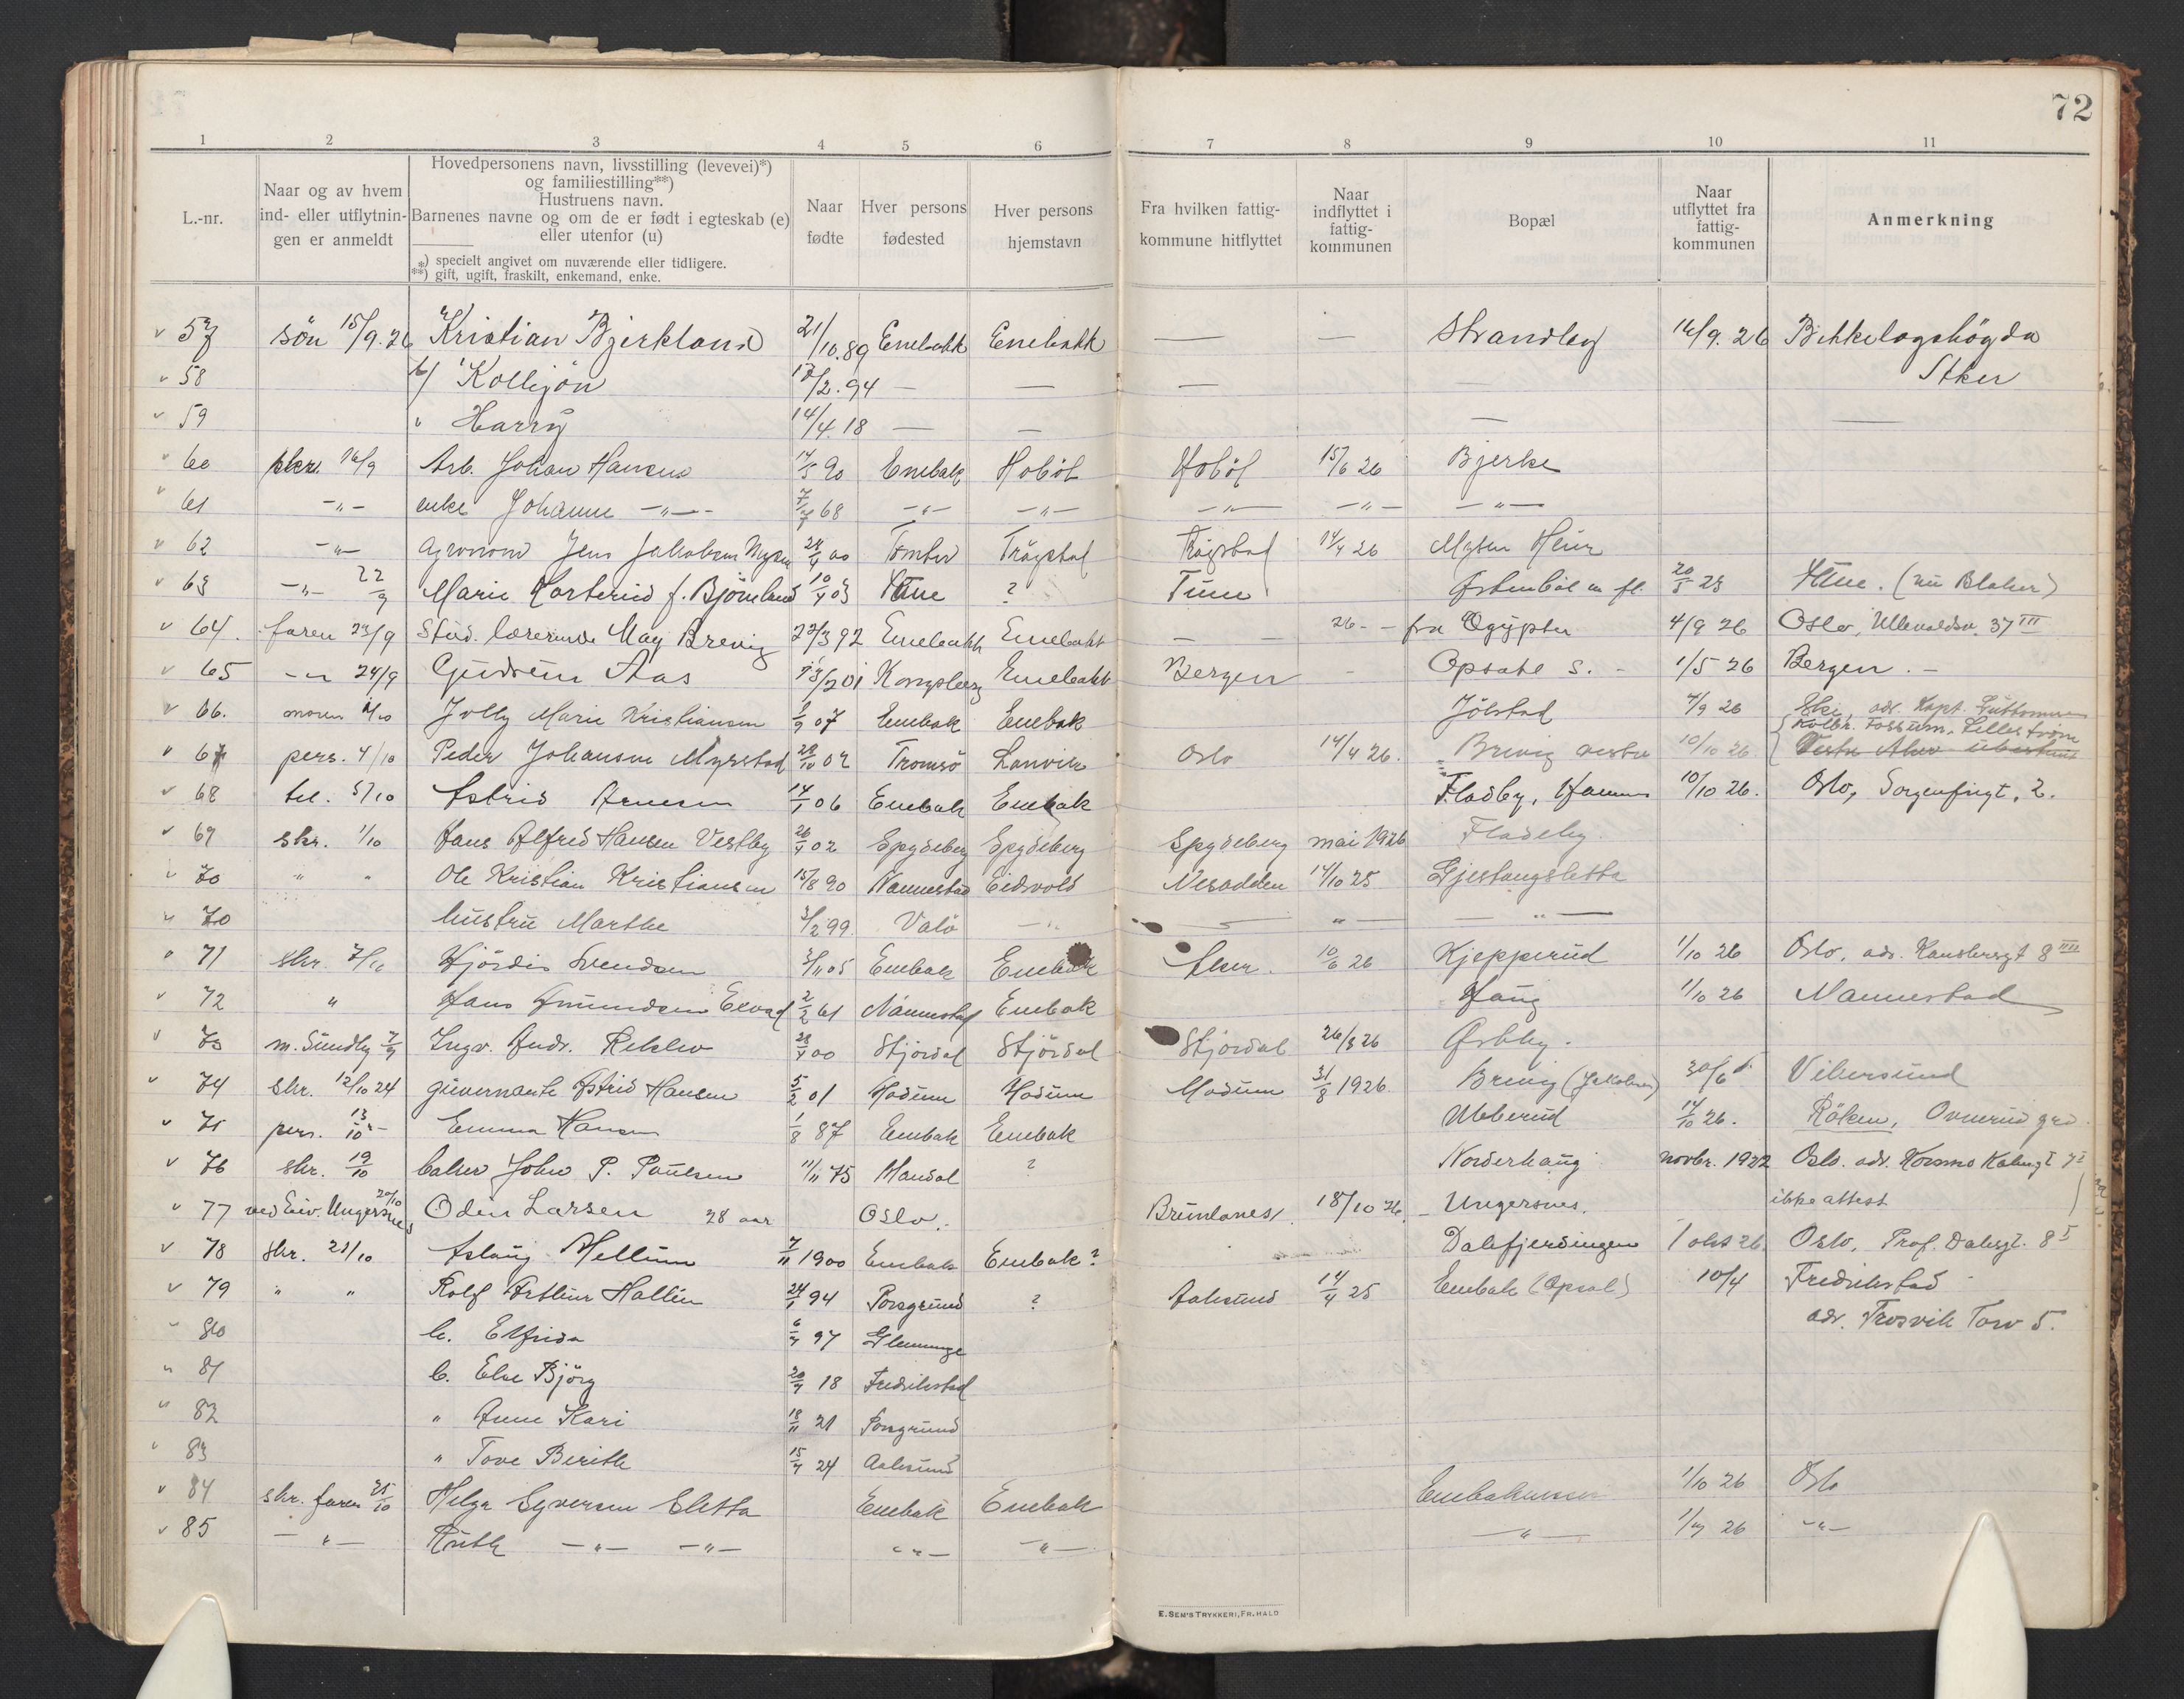 72
1 2 3 4 5 6 7 8 9 10 11
L.-nr.
Naar og av hvem ind- eller utflytnin-gen er anmeldt
Hovedpersonens navn, livsstilling (levevei)*) og familiestilling**)
Hustruens navn.
Barnenes navne og om de er født i egteskab (e) eller utenfor (u)
*) specielt angivet om nuværende eller tidligere.
**) gift, ugift, fraskilt, enkemand, enke.
Naar fødte
Hver persons fødested
Hver persons hjemstavn
Fra hvilken fattig-kommune hitflyttet
Naar indflyttet i fattig-kommunen
Bopæl
Naar utflyttet fra fattig-kommunen
Anmerkning
v 57 søn 15/9.26 Kristian Bjerkland 21/10.89 Enebakk Enebakk — — Strandby 16/9. 26 Bekkelagshøgda
Aker
v 58 17/2.94 — — —
v 59 " Harry 14/4.18 — — — —
v 60 skr. 16/9 Arb. Johan Hansen 90 Enebak Hobøl Hobøl 15/6 26 Bjerke
v 61 -"- enke Johanne -"- 7/7 68 -"- -"- -"- -"- -"-
v 62 -"- agronom Jens Jakobsen Mysen 24/4 00 Tomter Trøgstad Trøgstad 14/4 26 Mysen
v 63 -"- 22/9 Marie Korterud f. Bjørnland 10/4 03 Tune ? Tune Østenbøl m fl. 20/5 25 Tune. (nu Blaker)
v 64. faren 23/9 Stud. lærerinde May Brevig 23/3 92 Enebakk Enebakk — — 26 - fra Ægypten 4/9 26 Oslo, Ullevoldsv. 37 III
v 65 -"- 24/9 Gudrun Aas 01 Kongsberg Enebakk Bergen - Opsahl S. - 1/5 26 Bergen. -
v 66. moren Jolly Marie Kristiansen 07 Enebak Enebak Jølstad 7/9 26 Ski, adr. Kapt. Guttormsen
v 67 pers. 4/10 Peder Johansen Myrstad 02 Tromsø Lanvik Oslo 14/4 26. Brevig vestre 10/10 26 Kolbr. Fossum, Lillestrøm
v 68 tel. 5/10 Astrid Arnesen 06 Enebak Enebak Fladby, Hammer 10/10 26. Oslo, Sorgenfrigt. 2.
v 69 skr. 1/10 Hans Alfred Hansen Vestby 26/4 02 Spydeberg Spydeberg Spydeberg mai 1926 Fladeby
v 70 " " Ole Kristian Kristiansen 15/8 90 Nannestad Eidsvold Nesodden 14/10 25 Gjestangsletta
" 70 hustru Marthe 3/2 99. Valø -"- — " — — " —
" 71 skr. 7/10 Hjørdis Svendsen 3/11 05 Enebak Enebak Aker. 10/6 26 Kjepperud 1/10 26 Oslo, adr.
v 72 " Hans Amundsen 2/2 61 Nannestad Enebak Haug 1/10 26 Nannestad
v 73 m. Sundby 7/9 Ingv. Andr. 00 Stjørdal Stjørdal Stjørdal 26/3 26 Østby.
v 74 skr. 12/10 24 guvernante Astrid Hansen 5/2 01 Modum Modum Modum 31/8 1926. Brevig (Jakobsen) 30/6 Vikersund
v 75 pers. 13/10 - Emma Hansen 1/8 87 Enebak Enebak Ubberud 14/10 26. Røken,
v 76 skr. 19/10 baker John P. Paulsen 11/11 75 Mandal ? Norderhaug novbr. 1922 Oslo. adr.
v 77 ved Eiv. Ungersnes 20/10 Oden Larsen 28 aar Oslo. Brunlanes. 18/10 26. - Ungersnes. ikke attest
v 78 skr. 21/10 Aslaug Mellum 7/11 1900 Enebak Enebak? Dalefjerdingen 1 okt 26. Oslo, Prof. Dahlsgt. 8 I
v 79 " " Rolf Arthur Hallén 94 Porsgrund ? Aalesund 14/4 25 Enebak (Opsal) 10/4 Fredrikstad
adr. Trosvik Torv 5.
" 80 h. Elfrida 97 Glemminge
" 81 b. Else Bjørg 18 Fredrikstad
" 82 " Anne Kari 18/11 21 Porsgrund
" 83 " Tove Berith 24 Aalesund
v 84 skr. faren 25/10 Helga Syversen Sletta Enebak Enebak 1/10 26 Oslo
v 85 -"- Ruth -"- -"- -"- -"- -"- 26 -"-
E. SEM'S TRYKKERI, FR.HALD